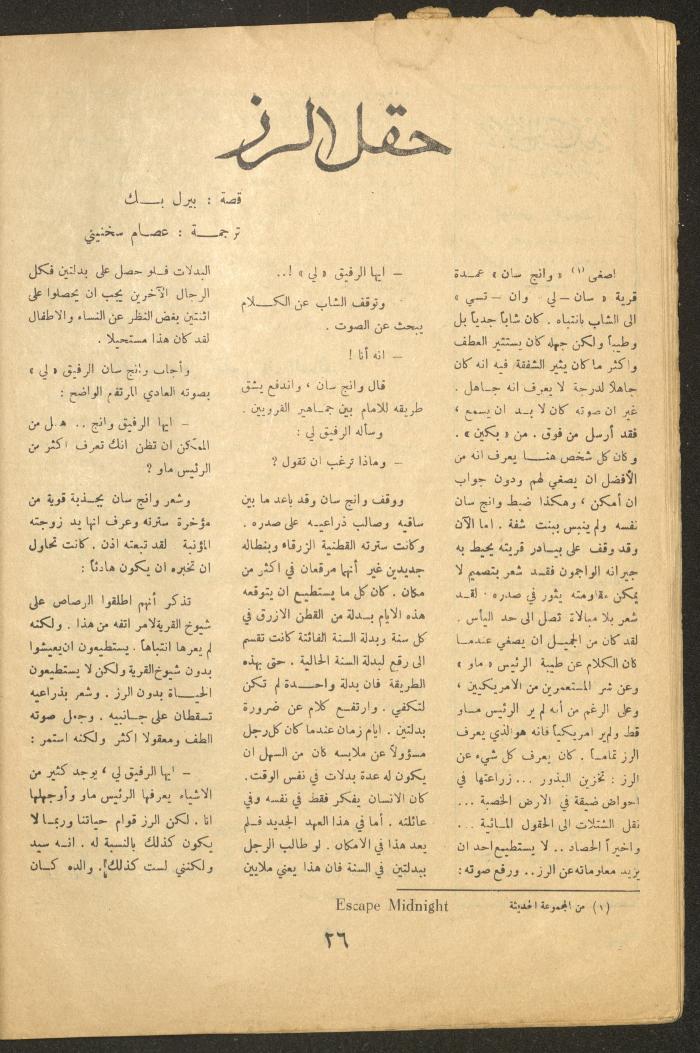 حقل الرز
قصة : بيرل بـــك
ترجمـــة : عصـام سخنيني
اصغى (١) « وانج سان » عمـدة
قرية « سان ــ لي وان ــ تسي »
الى الشاب بانتباه . كان شاباً جدياً بل
وطيباً ولكن جهله كان يستثير العطف
واكثر ما كان يثير الشفقة فيه انه كان
جاهلاً لدرجة لا يعرف انه جاهـل .
غير ان صوته كان لا بـد ان يسمع ،
فقد أرسل من فوق . من « بكين » .
وكان كل شخص هنـا يعرف انه من
الأفضل ان يصغي لهم ودون جواب
ان أمكن ، وهكذا ضبط وانج سان
نفسه ولم ينبس ببنت شفة . اما الآن
وقد وقف على بيـادر قريته يحيط به
جيرانه الواجمون فقـد شعر بتصميم لا
يمكن مقاومته يثور في صدره . لقـد
شعر بلا مبالاة تصل الى حد اليأس .
لقد كان من الجميـل ان يصغي عندمـا
كان الكلام عن طيبة الرئيس « ماو »
وعن شر المستعمرين من الامريكيين ،
وعلى الرغم من أنه لم ير الرئيس مـاو
قط ولم ير امريكياً فانه هو الذي يعرف
الرز تمامـاً . كان يعرف كل شيء عن
الرز : تخزين البذور ... زراعتها في
احواض ضيقة في الارض الخصبة ...
نقل الشتلات الى الحقول المـائية ...
واخيراً الحصاد .. لا يستطيع احد ان
يزيد معلوماته عن الرز .. ورفع صوته :
ــ ايها الرفيق « لي » !..
وتوقف الشاب عن الكـــلام
يبحث عن الصوت .
ــ انه أنا !
قال وانج سان ، واندفع يشق
طريقه للامام بين جمـاهير القرويين .
وسأله الرفيق لي :
ــ وماذا ترغب ان تقول ؟
ووقف وانج سان وقد باعد ما بين
ساقيه وصالب ذراعيـه على صدره .
وكانت سترته القطنية الزرقاء وبنطاله
جديدين غير أنهما مرقعان في اكثر من
مكان . كان كل ما يستطيـع ان يتوقعه
هذه الايام بـدلة من القطن الازرق في
كل سنة وبدلة السنة الفائتة كانت تقسم
الى رقع لبدلة السنة الحالية . حتى بهذه
الطريقة فان بدلة واحـــدة لم تكن
لتكفي . وارتفـع كلام عن ضرورة
بدلتين . ايام زمان عندما كان كل رجل
مسؤولاً عن ملابسه كان من السهل ان
يكون له عدة بدلات في نفس الوقت.
كان الانسان يفكر فقط في نفسه وفي
عائلته . أما في هذا العهد الجديد فـلم
يعد هذا في الامكان . لو طالب الرجل
ببدلتين في السنة فان هذا يعني ملايين
البدلات فـلو حصل على بدلتين فكـل
الرجال الآخرين يجب ان يحصلوا على
اثنتين بغض النظر عن النساء والاطفال
لقد كان هذا مستحيلا .
وأجاب وانج سان الرفيق « لي »
بصوته العادي المرتفع الواضح :
ــ ايها الرفيق وانج .. هـل من
الممكن ان تظن انك تعرف اكثر من
الرئيس ماو ؟
وشعر وانج سان بجـذبة قوية من
مؤخرة سترته وعرف انها يد زوجته
المؤنبة لقد تبعته اذن . كانت تحاول
ان تخبره ان يكون هادئاً :
تذكر أنهم اطلقوا الرصاص على
شيوخ القرية لامر اتفه من هذا . ولكنه
لم يعرها انتباهاً . يستطيعون ان يعيشوا
بدون شيوخ القرية ولكن لا يستطيعون
الحيـاة بدون الرز . وشعر بذراعيه
تسقطان على جـانبيه . وجعل صوته
الطف ومعقولا اكثر ولكنه استمر :
ــ ايها الرفيق لي ، يوجد كثير من
الاشياء يعرفها الرئيس ماو وأجهلها
انا . لكن الرز قوام حياتنا وربمـا لا
يكون كذلك بالنسبة له . انـه سيد
ولكنني لست كذلك . والده كـان
(١) من المجموعة الحديثة Escape Midnight
٢٦